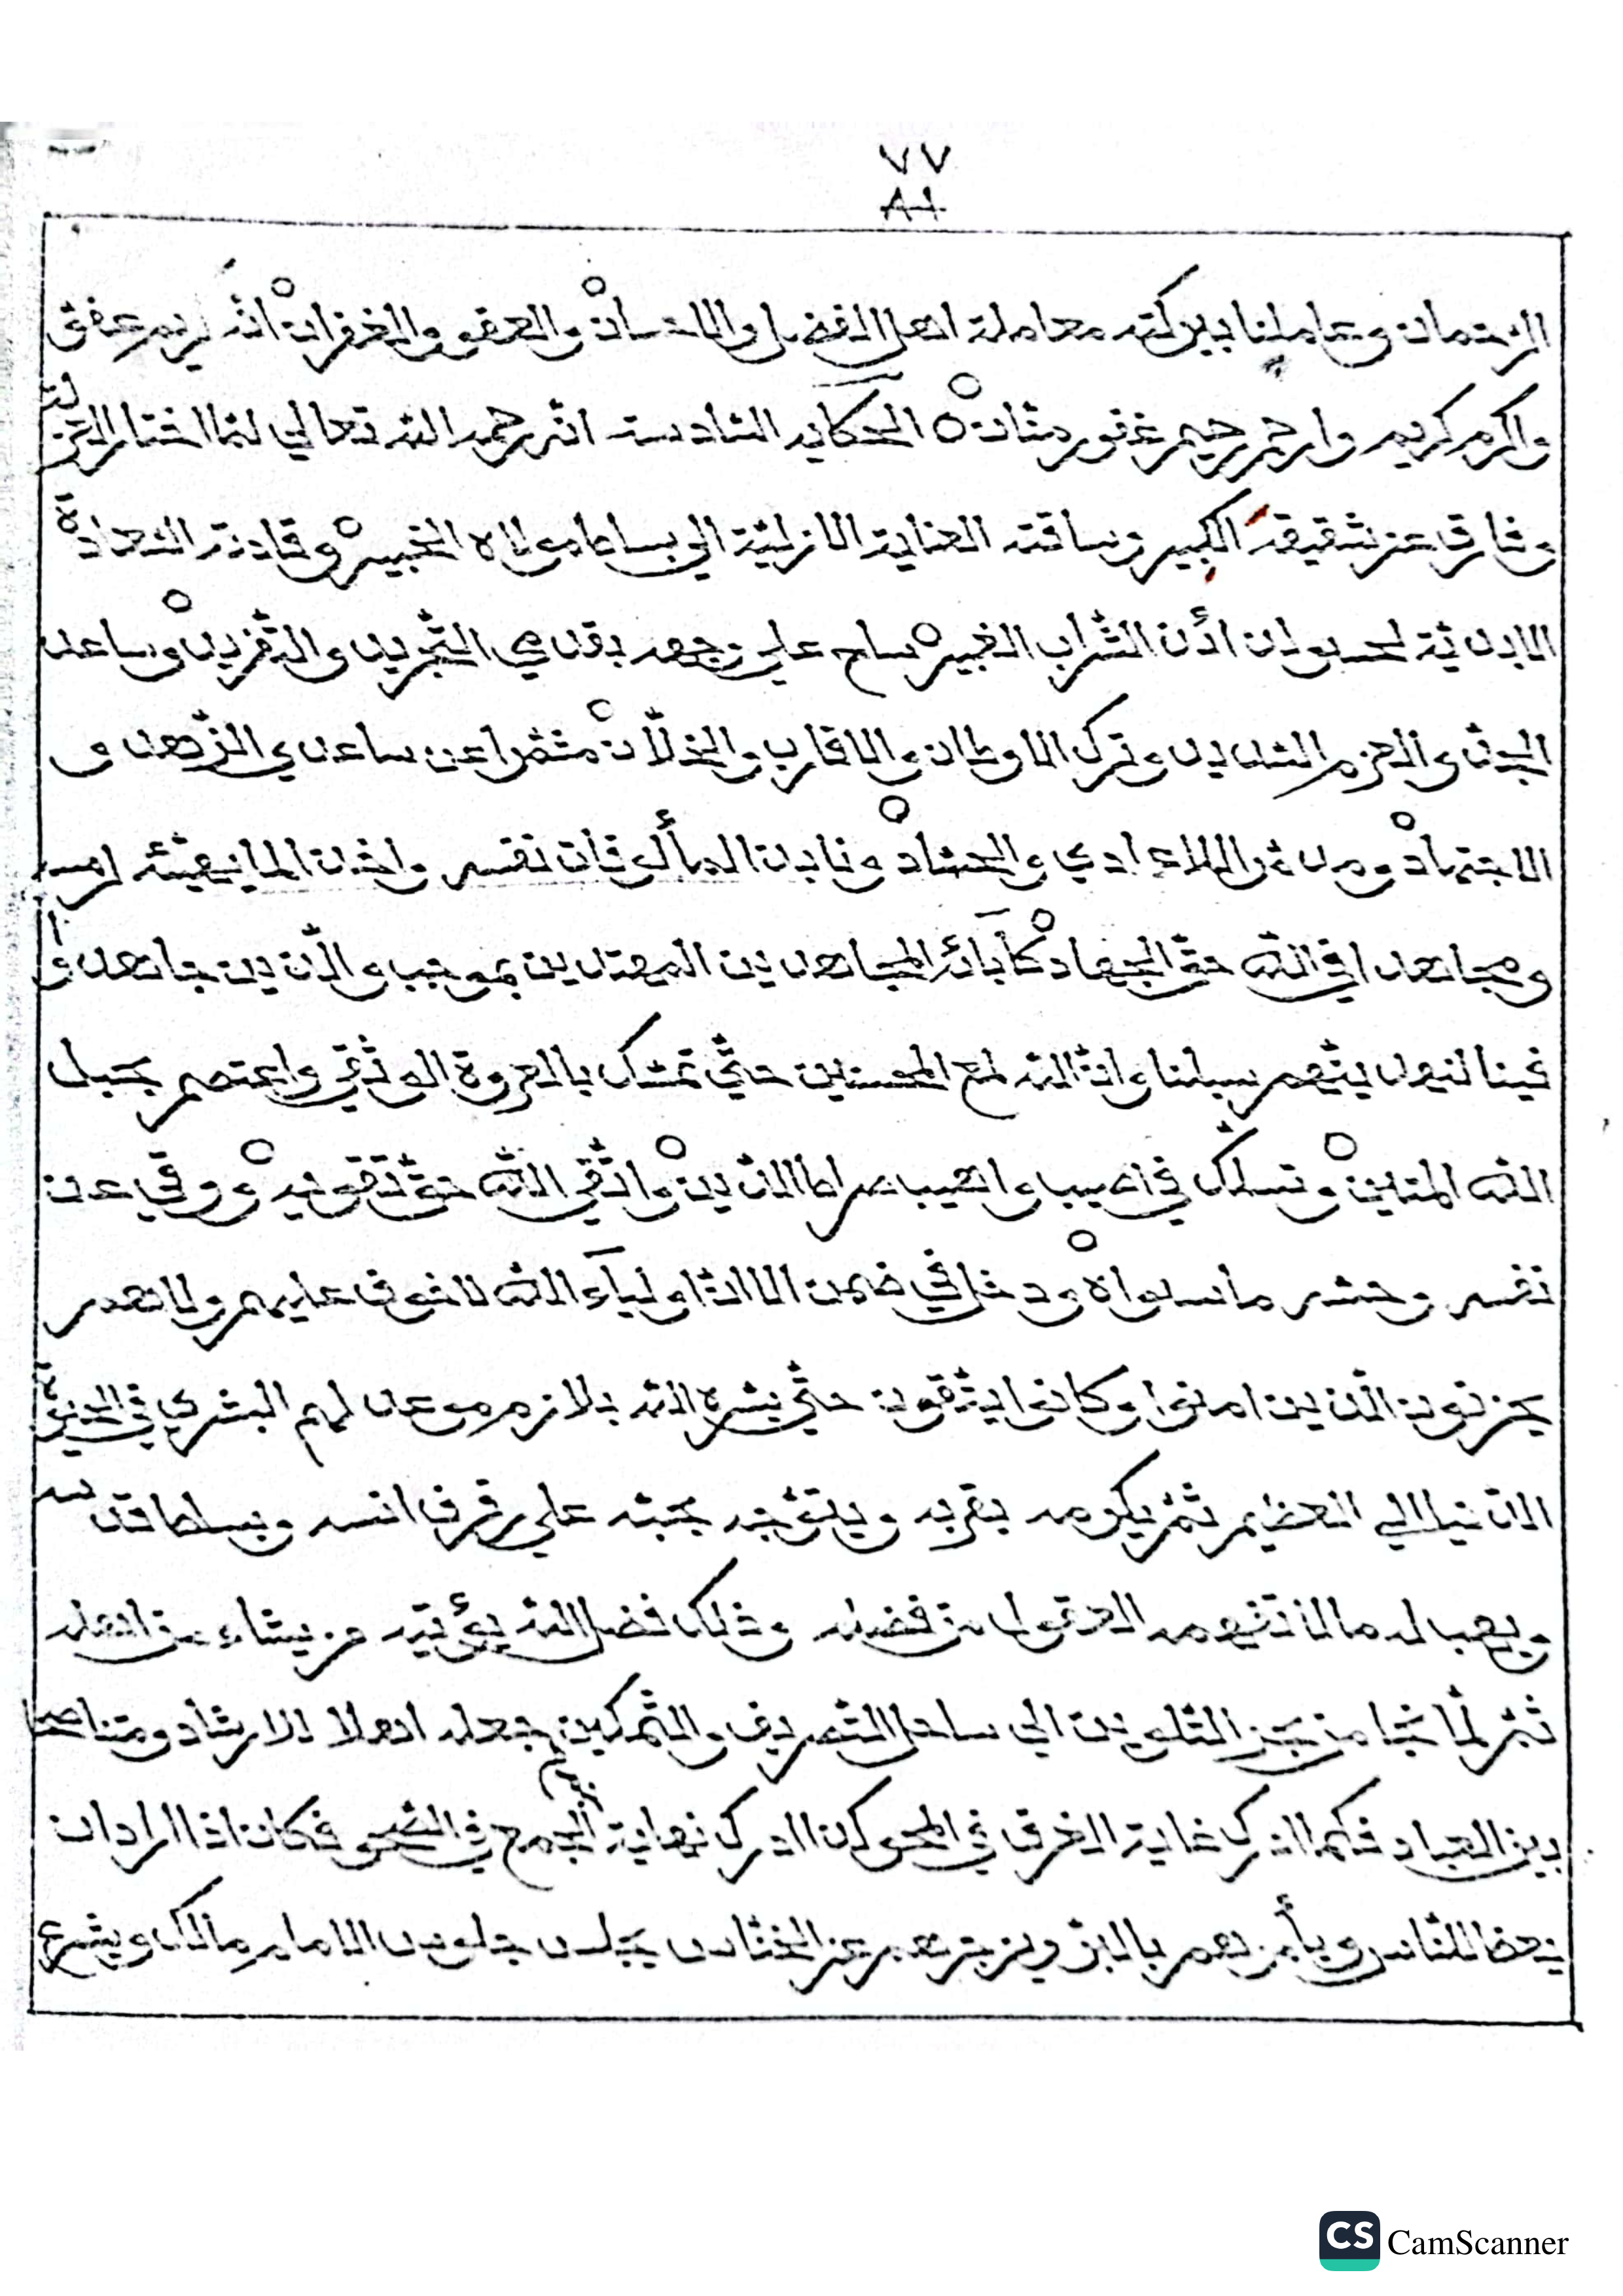 ٧٧
٨١
الزحمان وعاملنا ببركته معاملة اهل الفضل والاحسان والعفو والغفران انه كريم عفو
واكرم كريم وارحم رحيم غفور منان الحكاية السادسة انه رحمه الله تعالي لما اختار العزلة
وفارق عن شقيقه الكبير وساقته العناية الازلية الي بساط مولاه الخبير وقادته السعادة
الابدية لحسو لدن الشراب الغبير ساح علي وجهه بقدمي التجريد والتفريد وساعد
الجد والعزم الشديد وترك الاوطان والاقارب والخلان مشمرا عن ساعدي الزهد و
الاجتهاد ومدة الاعادي والحساد ونابذ المألوفات نفسه واخذ لما يهيئه لرمسه
ومجاهدا في الله حق الجهاد كأبائه المجاهدين المهتدين بموجب والذين جاهدوا
فينا لنهدينهم سبلنا وان الله لمع المحسنين حتي تمسك بالعروة الوثقي واعتصم بحبل
الله المتين وتسلك في اهيب واهيب صراط الدين واتقي الله حق تقويه ووقي عن
نفسه وحشه ما سواه ودخل في ضمن الا ان اولياء الله لا خوف عليهم ولا هم
يحزنون الذين امنوا وكانوا يتقون حتي بشره الله بلازم موعد لهم البشري في الحيوة
الدنيا الي العظيم ثم يكرمه بقربه ويتوجه بحبه علي رفرف انسه وبساط قدسه
ويهب له ما لا تفهمه العقول من فضله وذلك فضل الله يؤتيه من يشاء من اهله
ثم لما نجا من بحر التلوين الي ساحل التصريف والتمكين جعله اهلا للارشاد ومناصحا
بين العباد فكما ادرك غاية الغرق في المحو كذا ادرك نهاية الجمع في الصحو فكان اذا اراد ان
يعظ للناس ويأمرهم بالبر ويزجرهم عن الخناس يجلس جلوس الامام مالك ويشرع
CS CamScanner